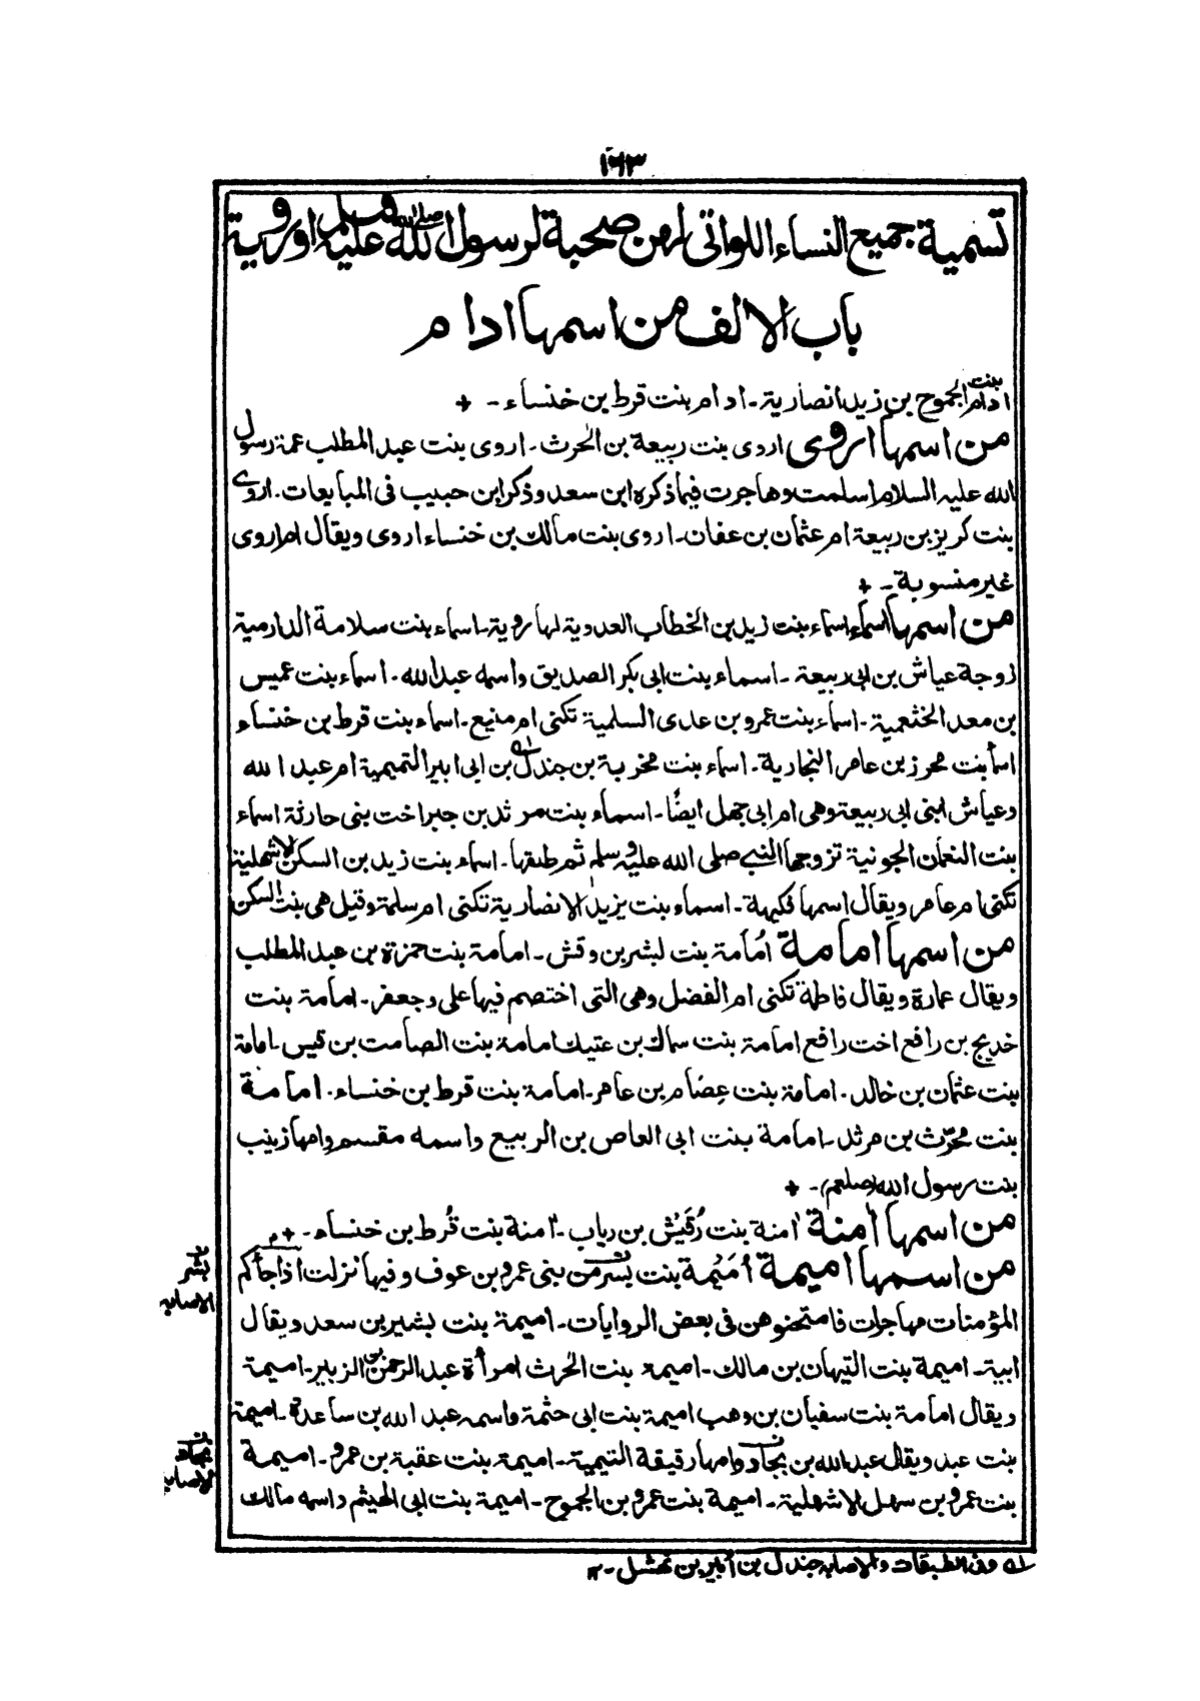 ١٦٣
تسمية جميع النساء اللواتى لهن صحبة لرسول الله صلى الله عليه وسلم او روية
باب الالف من اسمها ادام
ادام بنت الجموح بن زيد انصارية۔ ادام بنت قرط بن خنساء ۔ +
من اسمها اروى اروى بنت ربيعة بن الحرث۔ اروى بنت عبد المطلب عمة رسول
الله عليه السلام اسلمت وهاجرت فيما ذكره ابن سعد وذكر ابن حبيب فى المبايعات۔ اروى
بنت كريز بن ربيعة ام عثمان بن عفان۔ اروى بنت مالك بن خنساء اروى ويقال ام اروى
غير منسوبة ۔ +
من اسمها اسماء اسماء بنت زيد بن الخطاب العدوية لها روية۔ اسماء بنت سلامة الدارمية
زوجة عياش بن ابى ربيعة ۔ اسماء بنت ابى بكر الصديق واسمه عبد الله۔ اسماء بنت عميس
بن معد الخثعمية۔ اسماء بنت عمرو بن عدى السلمية تكنى ام منيع۔ اسماء بنت قرط بن خنساء
اسأ بنت محرز بن عامر النجارية۔ اسماء بنت مخربة بن جندل له بن ابى ابير التميمية ام عبد الله
وعياش ابنى ابى ربيعة وهى ام ابى جهل ايضًا۔ اسماء بنت مرثد بن جبر اخت بنى حارثة اسماء
بنت النعمان الجونية تزوجها النبي صلى الله عليه وسلم ثم طلقها۔ اسماء بنت زيد بن السكن الاشهلية
تكنى ام عامر ويقال اسمها فكيهة۔ اسماء بنت يزيد الانصارية تكنى ام سلمة وقيل هى بنت السكن
من اسمها امامة اُمامة بنت لبشر بن وقش۔ امامة بنت حمزة بن عبد المطلب
ويقال عمارة ويقال فاطمة تكنى ام الفضل وهى التى اختصم فيها على وجعفر۔ امامة بنت
خديج بن رافع اخت رافع امامة بنت سماك بن عتيك امامة بنت الصامت بن قيس۔ امامة
بنت عثمان بن خالد۔ امامة بنت عصام بن عامر۔ امامة بنت قرط بن خنساء۔ امامة
بنت محرّث بن مرثد۔ امامة بنت ابى العاص بن الربيع واسمه مقسم وامها زينب
بنت رسول الله (صلعم) ۔ +
من اسمها اٰمنة اٰمنة بنت رُقَيْش بن رياب۔ آمنة بنت قُرط بن خنساء ۔ +
من اسمها اميمة اُمَيْمة بنت بسر من بنى عمرو بن عوف وفيها نزلت اذا جأكم
المؤمنات مهاجرات فامتحنوهن فى بعض الروايات۔ اميمة بنت بشير بن سعد ويقال
ابية۔ اميمة بنت التيهان بن مالك۔ اميمة بنت الحرث امرأة عبد الرحمن بن الزبير۔ اميمة
ويقال امامة بنت سفيان بن وهب اميمة بنت ابى حثمة واسمه عبد الله بن ساعدة۔ اميمة
بنت عبد ويقال عبد الله بن بجاد وامها رقيقة التيمية۔ اميمة بنت عقبة بن عمرو۔ اميمة
بنت عمرو بن سهل الاشهلية۔ اميمة بنت عمرو بن الجموح۔ اميمة بنت ابى الهيثم واسمه مالك
بشر
الاصابه
بجاد
الاصابه
له وفى الطبقات والاصابه جندل بن اُبير بن نهشل ۔ ١٢